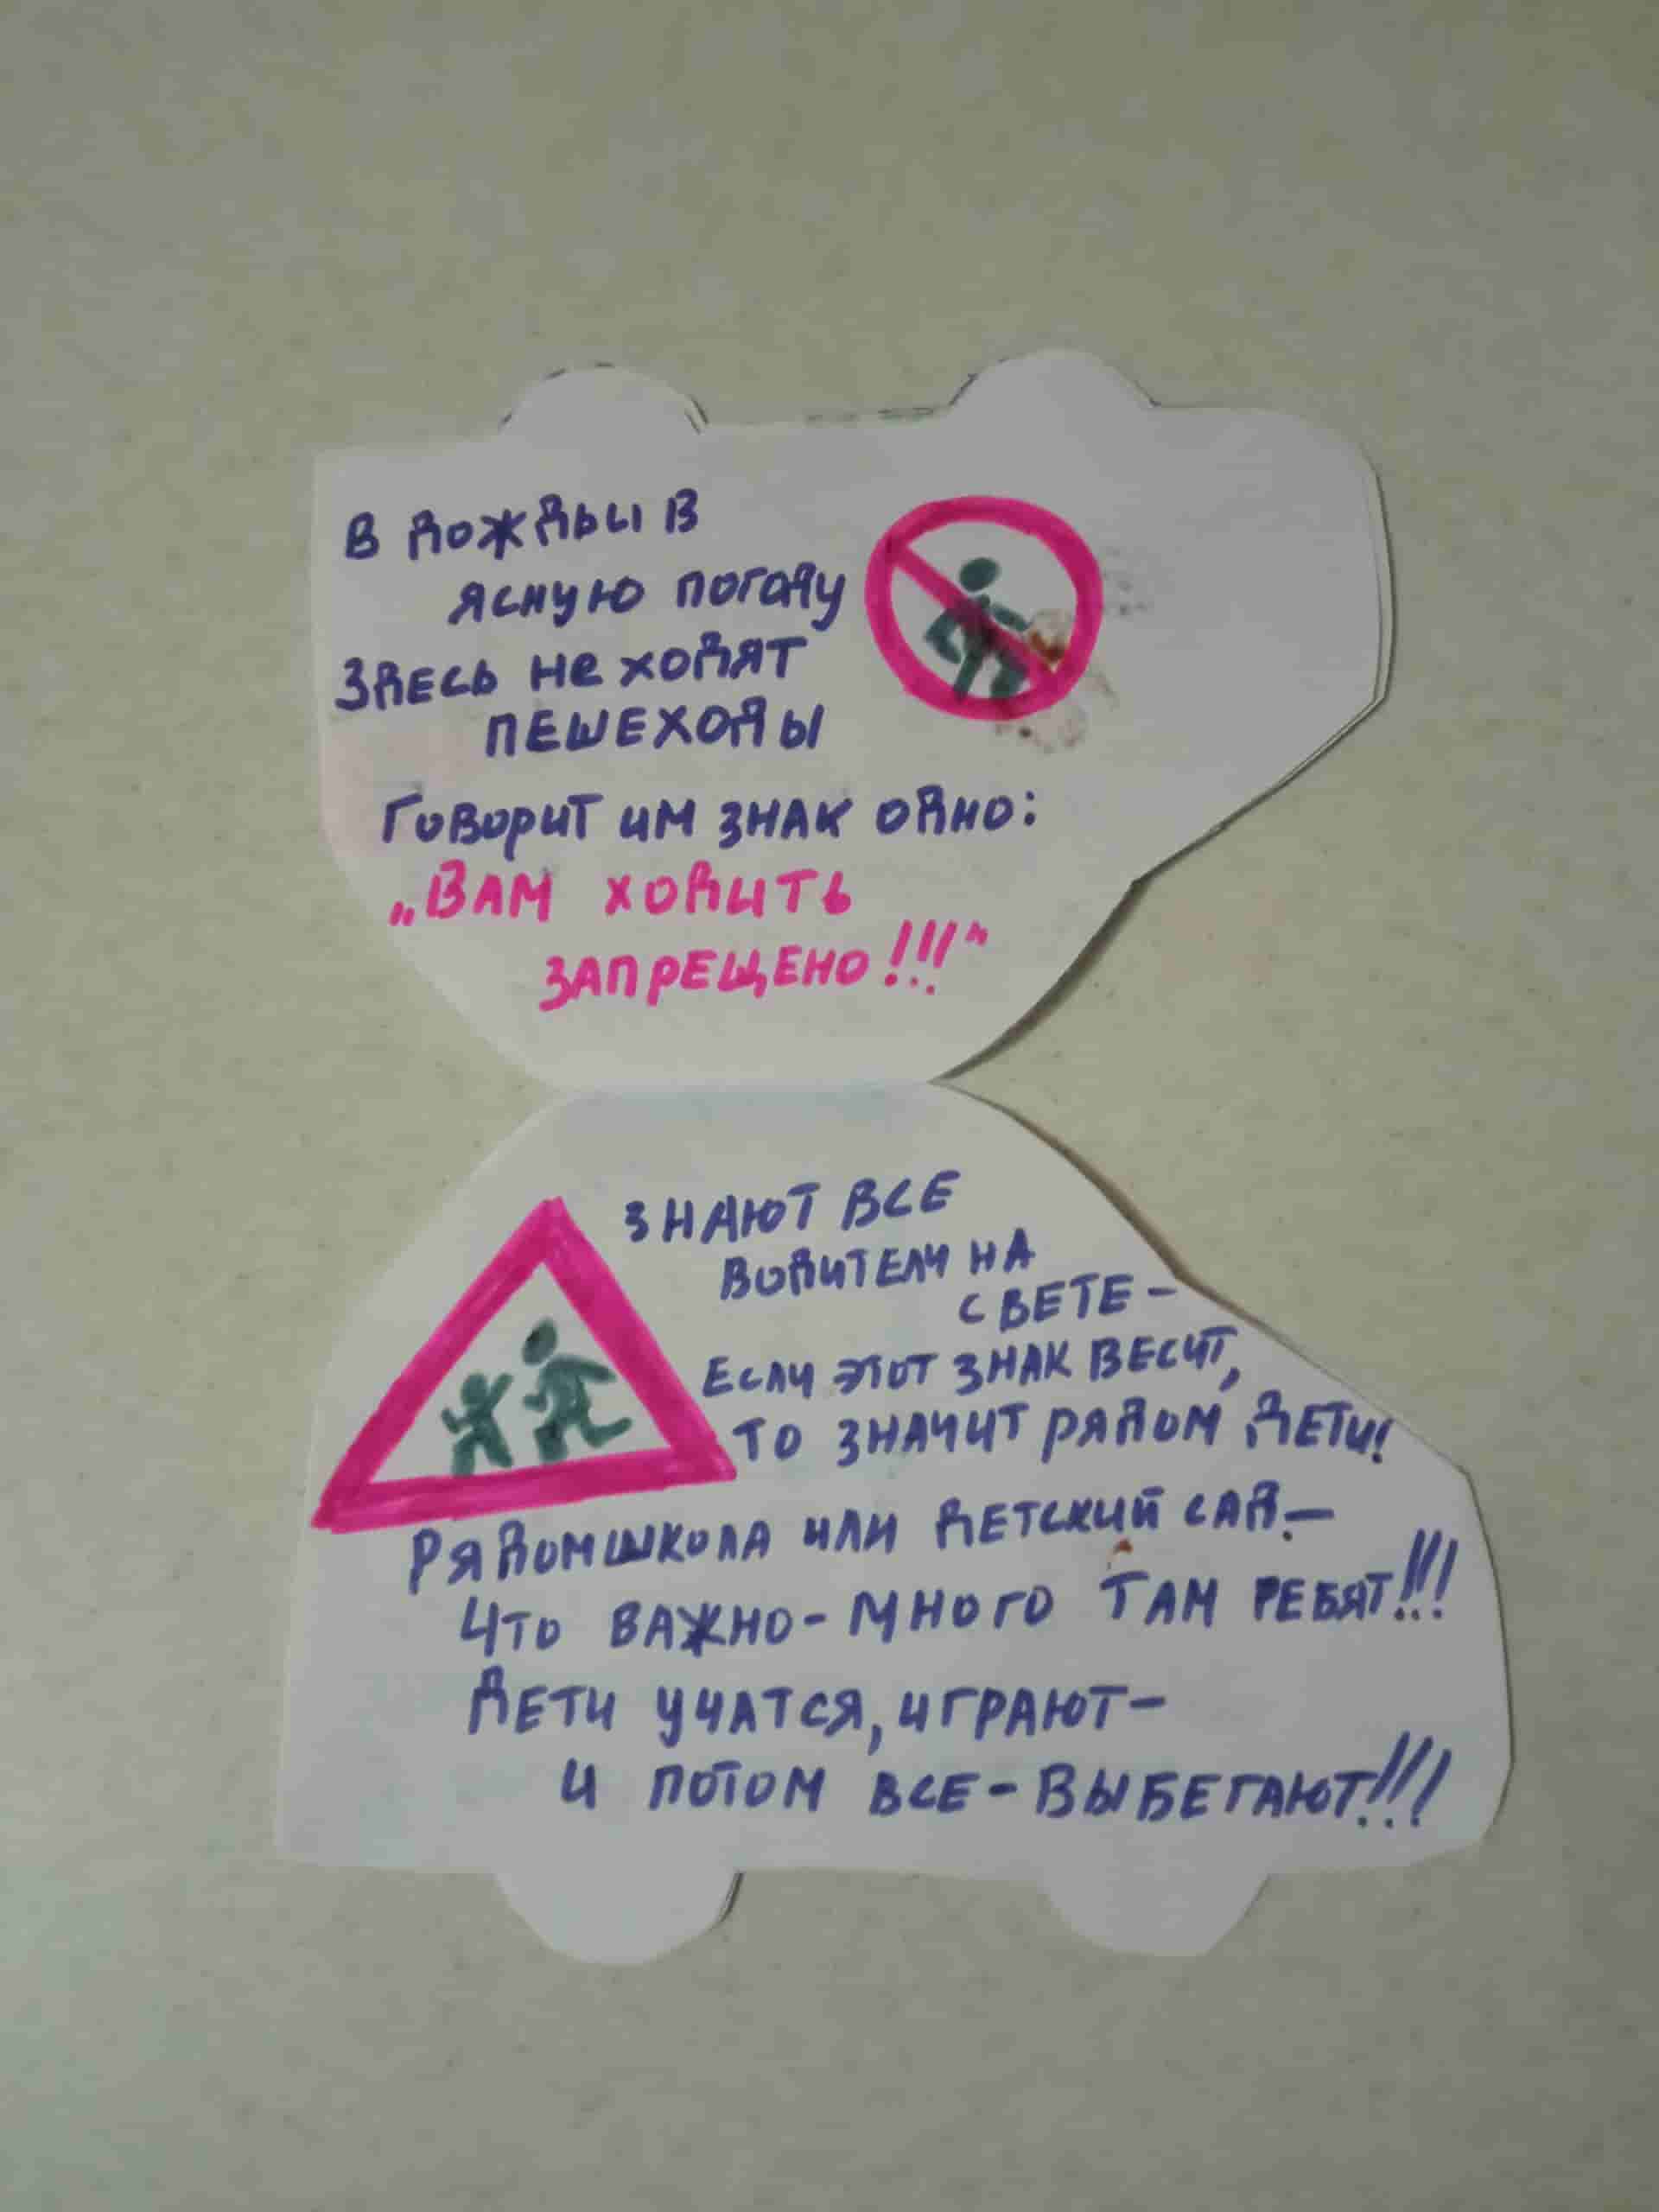 В дождьи в
ясную погоду
Здесь не ходят
пешеходы
Говорит им знак одно:
„Вам ходить
запрещено!!!"
Знают все
водители на
свете-
Если этот знак весит,
то значит рядом дети!
Рядом школа или детский сад.-
Что важно-много там ребят!!!
Дети учатся, играют-
и потом все-выбегают!!!